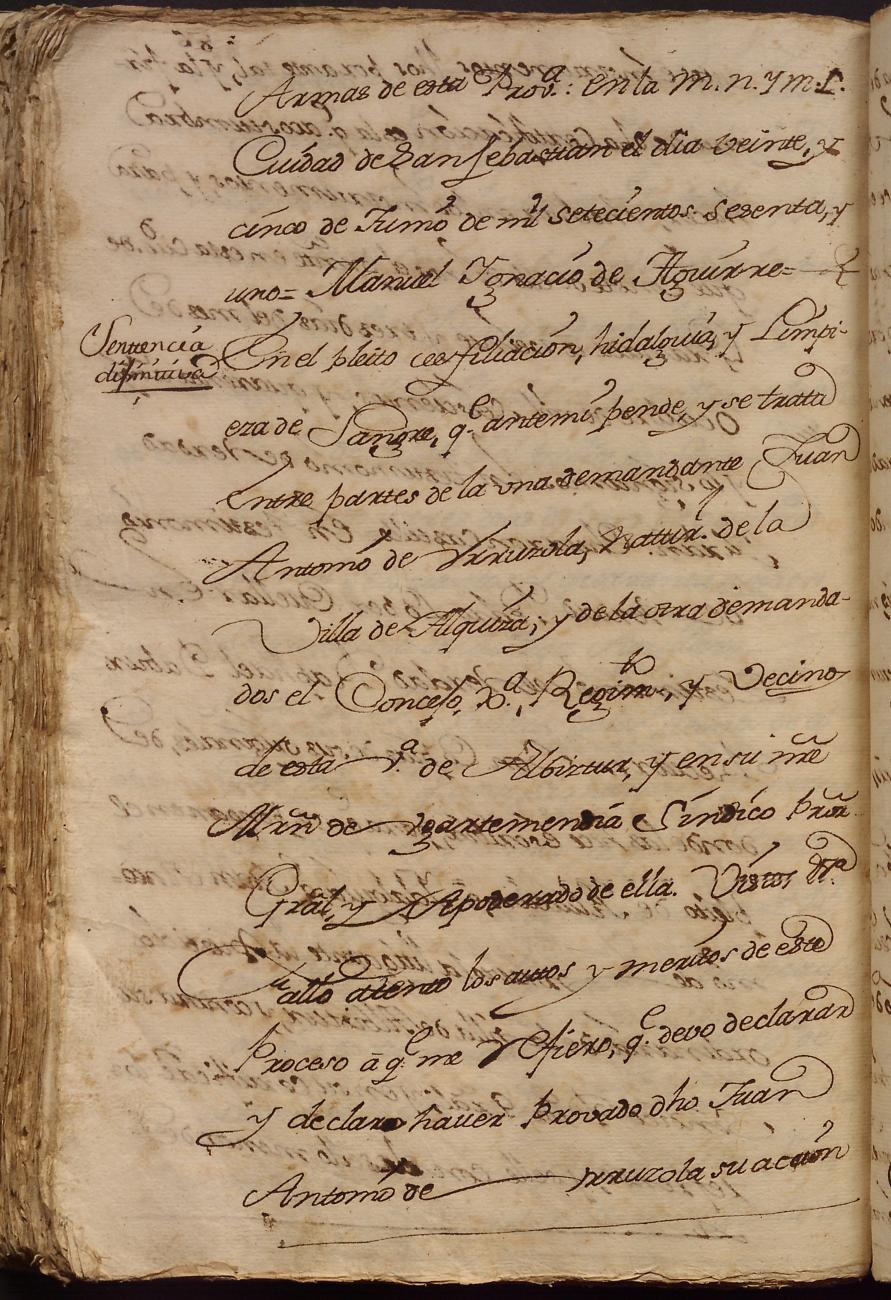 Armas de esta Prov.ª: en la M. n. y m. L.
Ciudad de San Sebastian el dia veinte, y
cinco de Junio de mil setecientos sesenta, y
uno= Manuel Ygnacio de Aguirre=
Sentencia
difinitiva
En el pleito de filiación, hidalguia, y Limpi-
eza de Sangre, q.e antemi pende, y se trata
entre partes de la una demandante Juan
Antonio de Yrruzola, Nattur. de la
Villa de Alquiza, y de la otra demanda-
dos el Concejo, Regim.to, y Vecinos
de esta V.ª de Albiztur, y en su nr̃e
Mrñ de Yzartemendia Sindico Pror̃
Gral, y Apoderado de ella. Vistos &.ª
Fallo atento los autos y meritos de este
Proceso à q.e me refiero, q.e devo declarar
y declaro haver Provado dho. Juan
Antonio de Yrruzola su acción